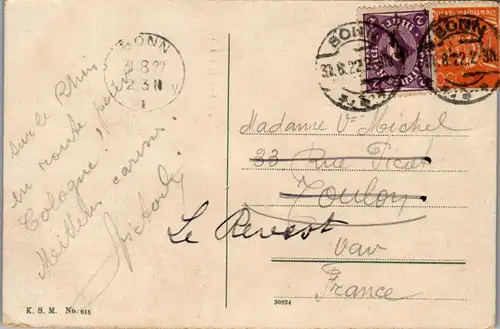 BONN
31.8.22
2-3 N
BONN
31.8.22.2-3N
BONN
8.22.2-3N
sur le Rhin
en route pour
Cologne!
Meilleurs
Madame Vve Michel
33 Rue Picot
Toulon
Le Revest
Var
France
K. S. M. No. 815
30634